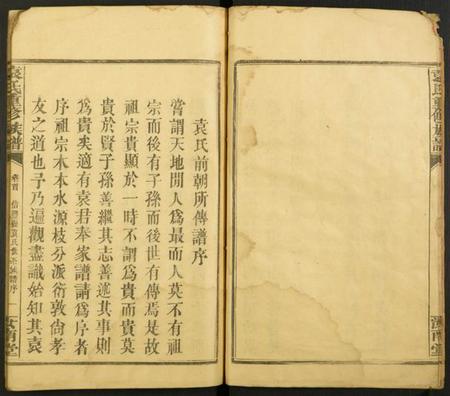 袁氏重修族譜
汝南堂
袁氏前朝所傳譜序
嘗謂天地間人爲最而人莫不有祖
宗而後有子孫而後世有傳焉是故
祖宗貴顯於一時不謂爲貴而貴莫
貴於賢子孫善繼其志善述其事則
爲貴矣適有袁君奉家譜請爲序者
序祖宗木本水源枝分派衍敦尙孝
友之道也予乃遍觀盡識始知其袁
袁氏重修族譜
卷首
袁氏
序
汝南堂